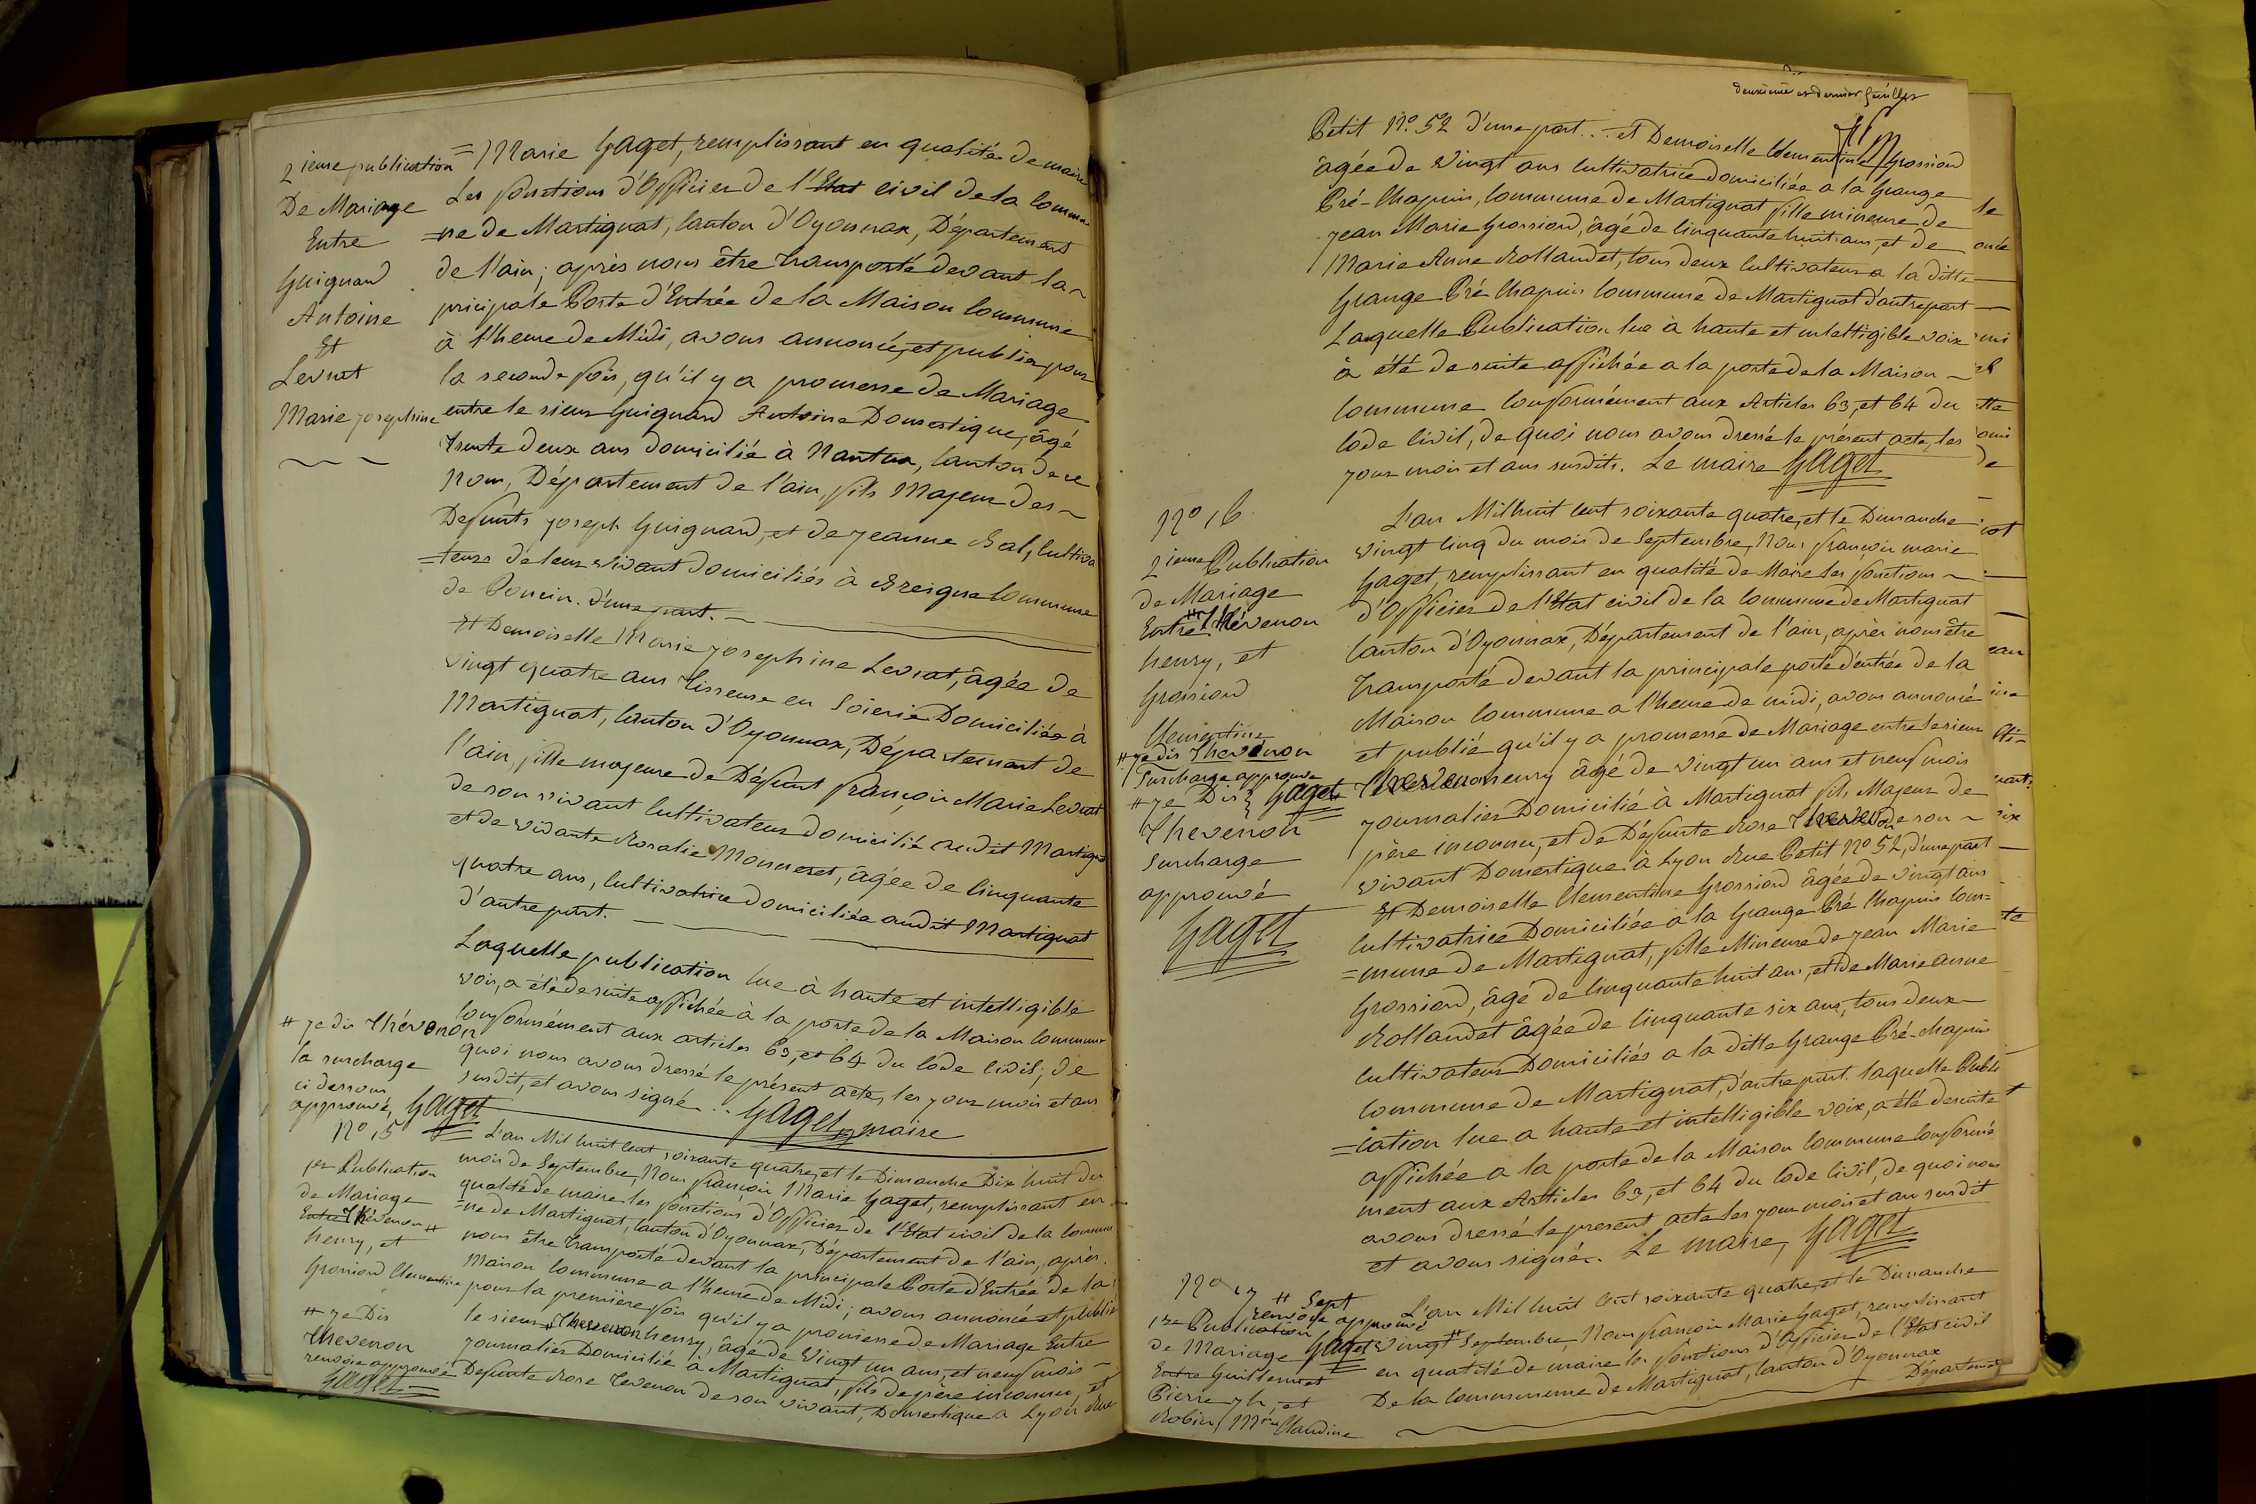 2ieme publication
De Mariage
Entre
Guignard
Antoine
Et
Levrat
Marie josephine
= Marie Gaget, remplissant en qualité de maire
Les fonctions d'Officier de l'Etat civil de la commu
=ne de Martignat, Canton d'Oyonnax, Département
de l'ain; après nous être transporté devant la
pricipale Porte d'Entrée de la Maison Commune
à l'heure de Midi, avons annoncé, et publié pour
la seconde fois, qu'il y a promesse de Mariage
entre le sieur Guignard Antoine Domestique, âgé
trente deux ans domicilié à Nantua, Canton de ce
Nom, Département de l'ain, fils Majeur des
Defunts joseph Guignard, et de jeanne Bal, Cultiva
=teurs de leur vivant domiciliés à Breigne Commune
de Poncin. d'une part.
Et Demoiselle Marie josephine Levrat, âgée de
vingt quatre ans tisseuse en Soierie Domiciliée à
Martignat, Canton d'Oyonnax, Département de
l'ain, fille majeure de Défunt françois Marie Levrat
de son vivant Cultivateur domicilié audit Martignat
et de vivante Rosalie Monneret, âgée de Cinquante
quatre ans, Cultivatrice domiciliée audit Martignat
d'autre part.
Laquelle publication lue à haute et intelligible
voix, a été de suite affichée à la porte de la Maison commune
Conformément aux articles 63, et 64 du Code Civil; de
quoi nous avons dressé le présent acte, les jour mois et an
susdit, et avons signé .. Gaget, maire
# je dis Thévenon
la surcharge
ci dessous
approuvé, Gaget
No 15
1er Publication
de Mariage
Entre Thévenon #
henry, et
Grossiord Clementine
# je Dis
Thevenon
renvoie approuvée
Gaget
L'an Mil huit Cent soixante quatre, et le Dimanche Dix huit du
mois de Septembre, Nous françois Marie Gaget, remplissant en
qualité de maire les fonctions d'Officier de l'Etat civil de la commu
=ne de Martignat, Canton d'Oyonnax, Département de l'ain, après
nous être transporté devant la principale Porte d'Entrée de la
Maison Commune a l'heure de Midi; avons annoncé et publié
pour la première fois qu'il y a promesse de Mariage Entre
le sieur # Thevenon henry, âgé de Vingt un ans, et neuf mois
journalier Domicilié à Martignat, fils de père inconnu, et
Defunte Rose Tevenon de son vivant, Domestique a Lyon Rue
deuxième et dernier feuillet
Petit No. 52 d'une part.. et Demoiselle Clementine Grossiord
âgée de Vingt ans Cultivatrice domiciliée a la Grange
Pré-Chapuis, Commune de Martignat fille mineure de
jean Marie Grossiord, âgé de Cinquante huit ans, et de
Marie Anne Rollandet, tous deux Cultivateurs a la ditte
Grange Pré Chapuis Commune de Martignat d'autre part
Laquelle Publication lue à haute et intelligible voix
à été de suite affichée a la porte de la Maison
Commune Conformément aux Articles 63, et 64 du
Code Civil, de quoi nous avons dressé le présent acte, les
jour mois et ans susdits. Le maire Gaget
No 16
2ieme Publication
de Mariage
Entre # Thévenon
henry, et
Grossiord
Clementine
# je dis Thevenon
Surcharge approuve
# je Dis Gaget
Thevenon
surcharge
approuvé
Gaget
L'an Mil huit Cent soixante quatre, et le Dimanche
vingt Cinq du mois de Septembre, Nous françois marie
Gaget, remplissant en qualité de Maire les fonctions
d'Officier de l'Etat civil de la Commune de Martignat
Canton d'Oyonnax, Département de l'ain, après nous être
transporté devant la principale porte d'entrée de la
Maison Commune a l'heure de midi, avons annoncé
et publié qu'il y a promesse de Mariage entre le sieur
Thevenon henry âgé de vingt un ans et neuf mois
journalier Domicilié à Martignat fils Majeur de
père inconnu, et de Défunte Rose Thevenon de son
vivant Domestique à Lyon Rue Petit No 52, d'une part
Et Demoiselle Clementine Grossiord âgée de vingt ans
Cultivatrice Domiciliée a la Grange Pré Chapuis Com=
=mune de Martignat, fille Mineure de jean Marie
Grossiord, âgé de Cinquante huit ans, et de Marie anne
Rollandet âgée de Cinquante six ans, tous deux
Cultivateurs Domiciliés a la ditte Grange Pré-chapuis
Commune de Martignat, d'autre part. laquelle Publi
=cation lue a haute et intelligible voix, a été de suite
affichée a la porte de la Maison Commune Conformé
ment aux Articles 63, et 64 du Code Civil, de quoi nous
avons dressé le present acte les jour mois et an susdit
et avons signé. Le maire, Gaget
No 17
# Sept
renvoie approuvé
Gaget
1re Publication
de Mariage
Entre Guillermet
Pierre jh, et
Robin, Mie Claudine
L'an Mil huit Cent soixante quatre, et le Dimanche
vingt # Septembre, Nous françois Marie Gaget, remplissant
en qualité de maire les fonctions d'Officier de l'Etat civil
De la Commune de Martignat, Canton d'Oyonnax
Département